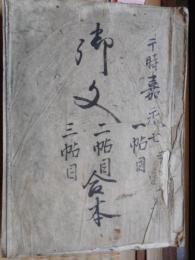 干時嘉永七
一帖目
御文
二帖目合本
三帖目